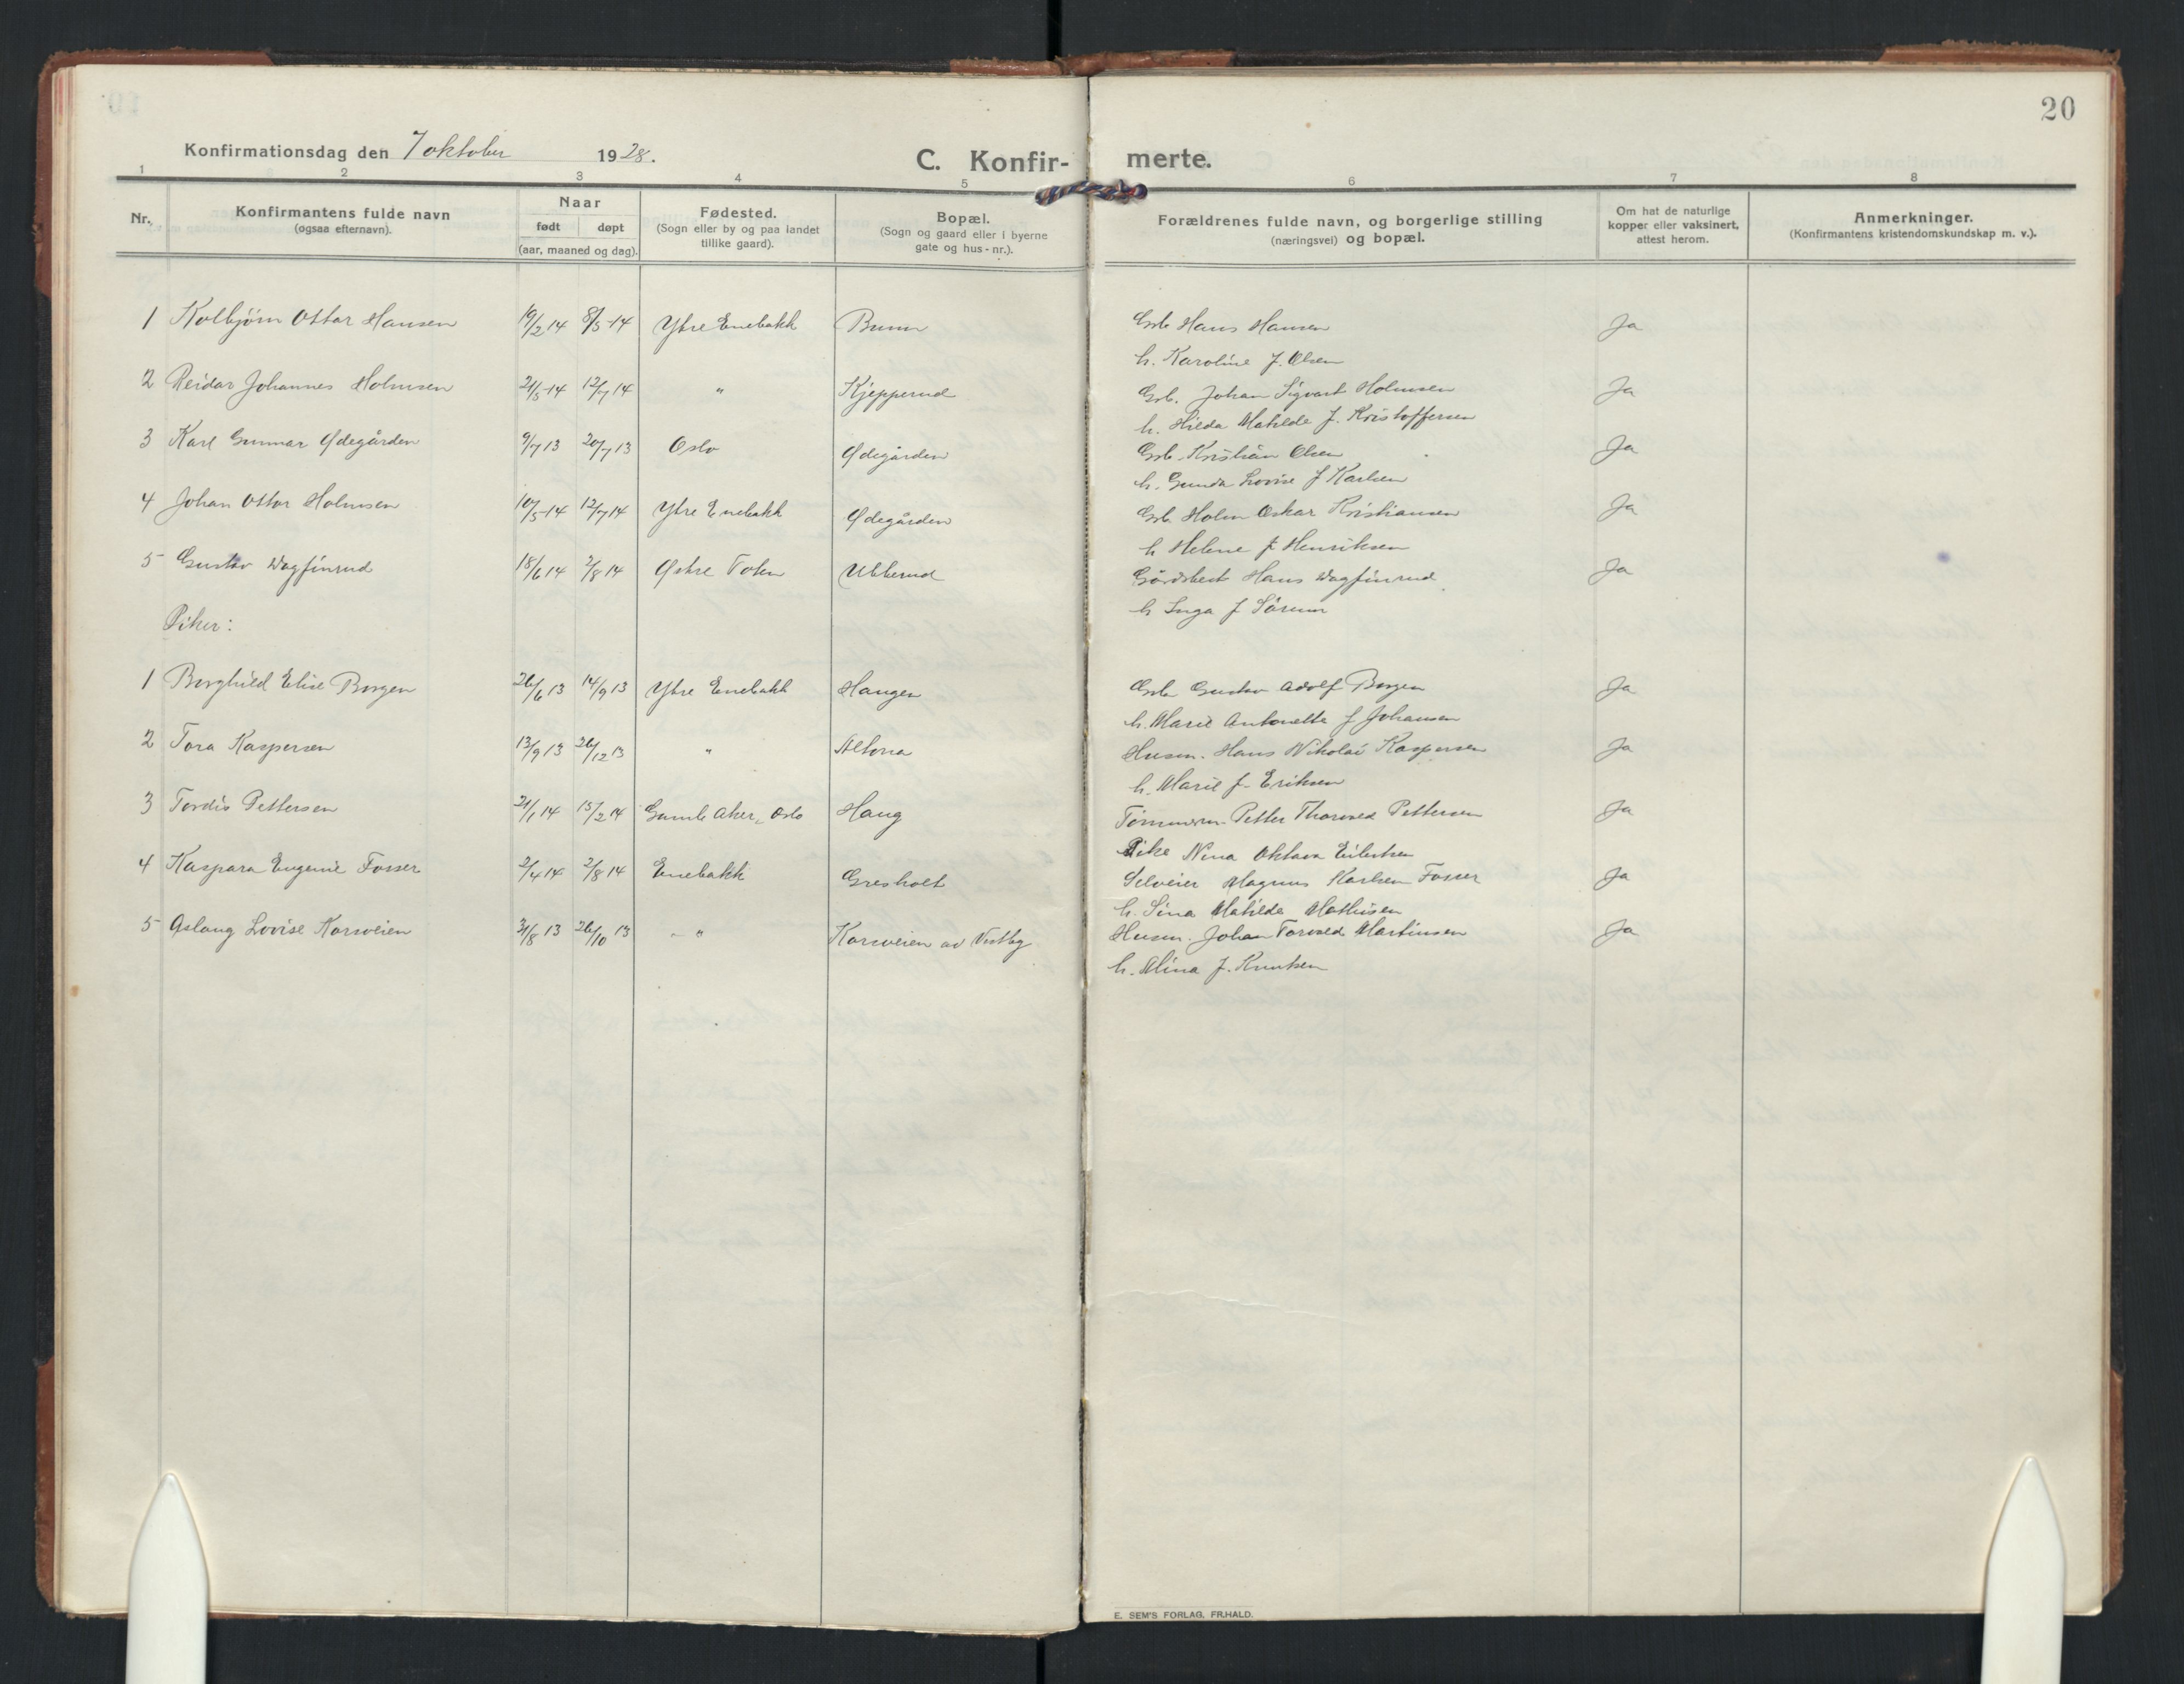 20
Konfirmationsdag den 7 oktober 1928.
C. Konfir- merte.
1 2 3 4 5 6 7 8
Nr.
Konfirmantens fulde navn
(ogsaa efternavn).
Naar
født døpt
(aar, maaned og dag).
Fødested.
(Sogn eller by og paa landet
tillike gaard).
Bopæl.
(Sogn og gaard eller i byerne
gate og hus-nr.).
Forældrenes fulde navn, og borgerlige stilling
(næringsvei) og bopæl.
Om hat de naturlige
kopper eller vaksinert,
attest herom.
Anmerkninger.
(Konfirmantens kristendomskundskap m. v.).
1 Kolbjørn Ottar Hansen 19/2 14 8/3-14 Ytre Enebakk Bunn Grb Hans Hansen Ja
h. Karoline f. Olsen
2 Reidar Johannes Holmsen 21/5-14 12/7 14 " Kjepperud Grb. Johan Sigvart Holmsen Ja
h. Hilda Matilde f. Kristoffersen
3 Karl Gunnar Ødegården 9/7 13 20/7 13 Oslo Ødegården Grb. Kristian Olsen Ja
h. Gunda Lovise f Karlsen
4 Johan Ottar Holmsen 10/5-14 12/7 14 Ytre Enebakk Ødegården Grb. Holm Oskar Kristiansen Ja
h Helene f Henriksen
5 Gustav Dagfinrud 18/6 14 2/8 14 Østre Toten Ubberud Gårdsbest Hans Dagfinrud Ja
h Inga f Sørum
Piker:
1 Borghild Elise Borgen 26/6 13 14/9 13 Ytre Enebakk Haugen Grb Gustav Adolf Borgen Ja
h. Marie Antonette f Johansen
2 Tora Kaspersen 13/9 13 26/12 13 " Altona Husm. Hans Nikolai Kaspersen Ja
h. Marie f. Eriksen
3 Tordis Pettersen 21/1 14 15/2 14 Gamle Aker, Oslo Haug Tømmerm. Petter Thorvald Pettersen Ja
Pike Nina Oktava Eilertsen
4 Kaspara Eugenie Fosser 2/4 14 2/8 14 Enebakk Gresholt Selveier Magnus Karlsen Fosser Ja
h. Sina Matilde Mathisen
5 Aslaug Lovise Korsveien 31/8 13 26/10 13 - " Korsveien av Vestby Husm. Johan Torvald Martinsen Ja
h. Alina f. Knutsen
E. SEM'S FORLAG, FR.HALD.